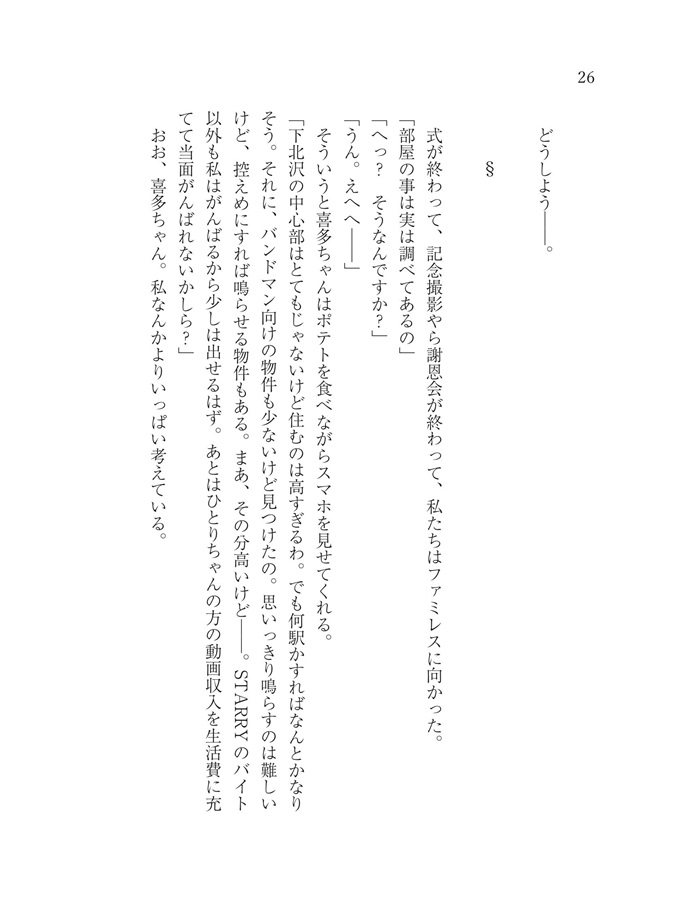 26
どうしよう――。
§
式が終わって、記念撮影やら謝恩会が終わって、私たちはファミレスに向かった。
「部屋の事は実は調べてあるの」
「へっ？　そうなんですか？」
「うん。えへへ――」
そういうと喜多ちゃんはポテトを食べながらスマホを見せてくれる。
「下北沢の中心部はとてもじゃないけど住むのは高すぎるわ。でも何駅かすればなんとかなり
そう。それに、バンドマン向けの物件も少ないけど見つけたの。思いっきり鳴らすのは難しい
けど、控えめにすれば鳴らせる物件もある。まあ、その分高いけど――。STARRYのバイト
以外も私はがんばるから少しは出せるはず。あとはひとりちゃんの方の動画収入を生活費に充
てて当面がんばれないかしら？」
おお、喜多ちゃん。私なんかよりいっぱい考えている。